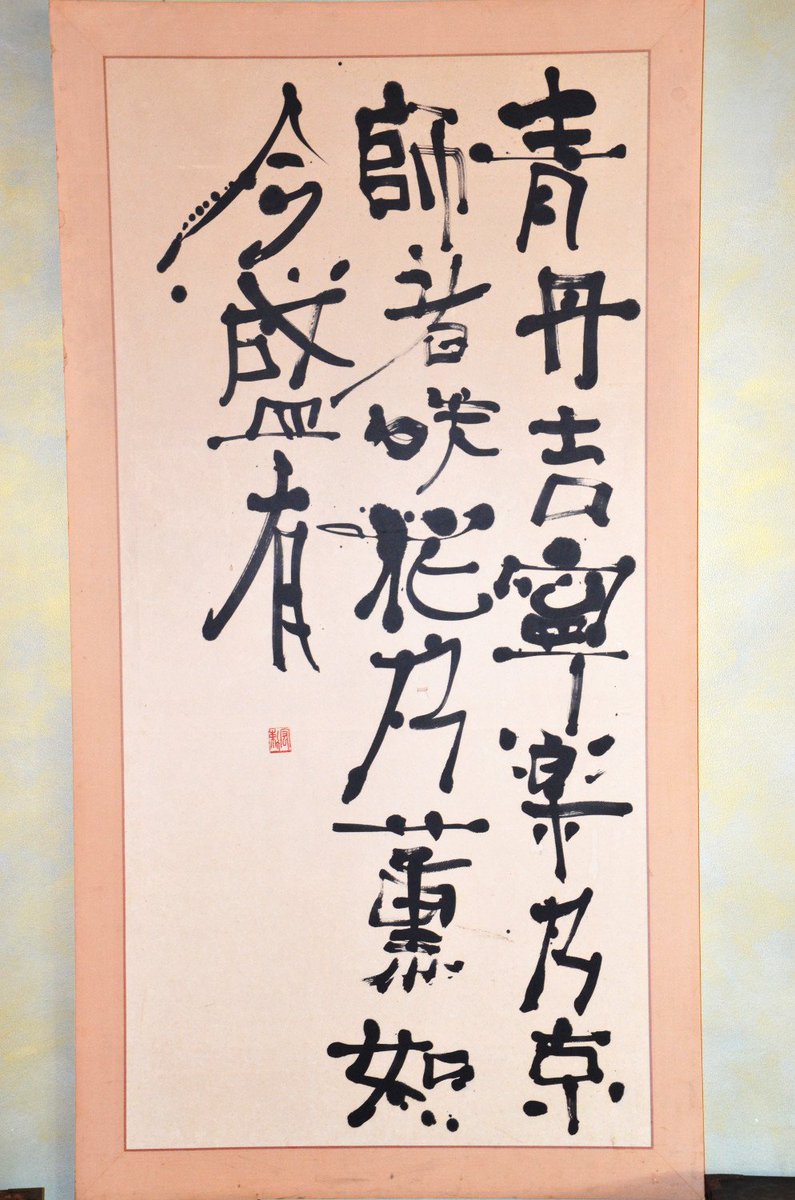 青丹吉寧楽乃京
師者咲花乃薫如
今盛有